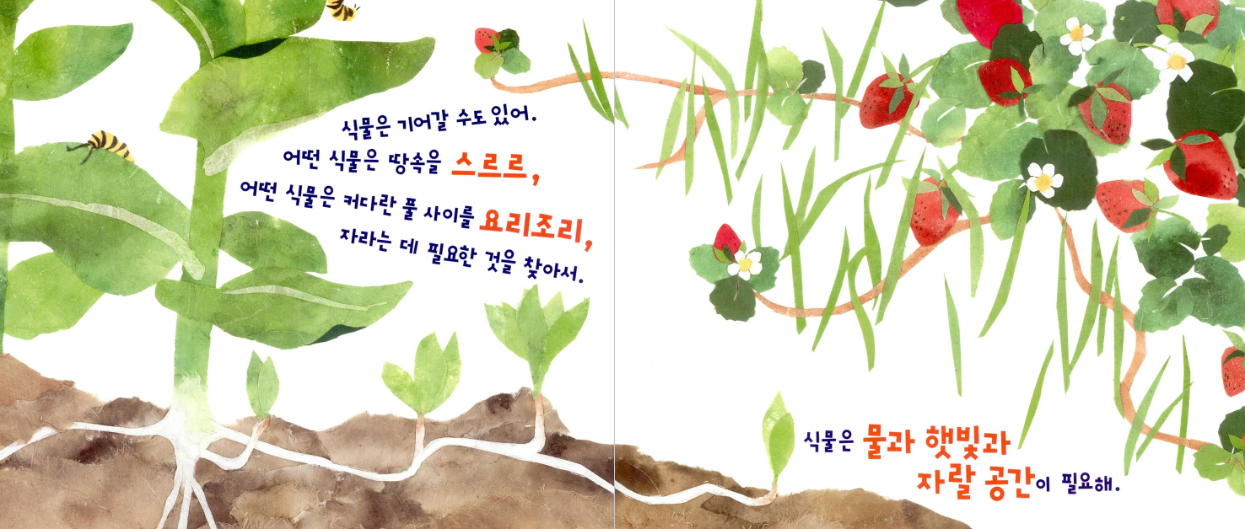 식물은 기어갈 수도 있어.
어떤 식물은 땅속을 스르르,
어떤 식물은 커다란 풀 사이를 요리조리,
자라는 데 필요한 것을 찾아서.
식물은 물과 햇빛과
자랄 공간이 필요해.